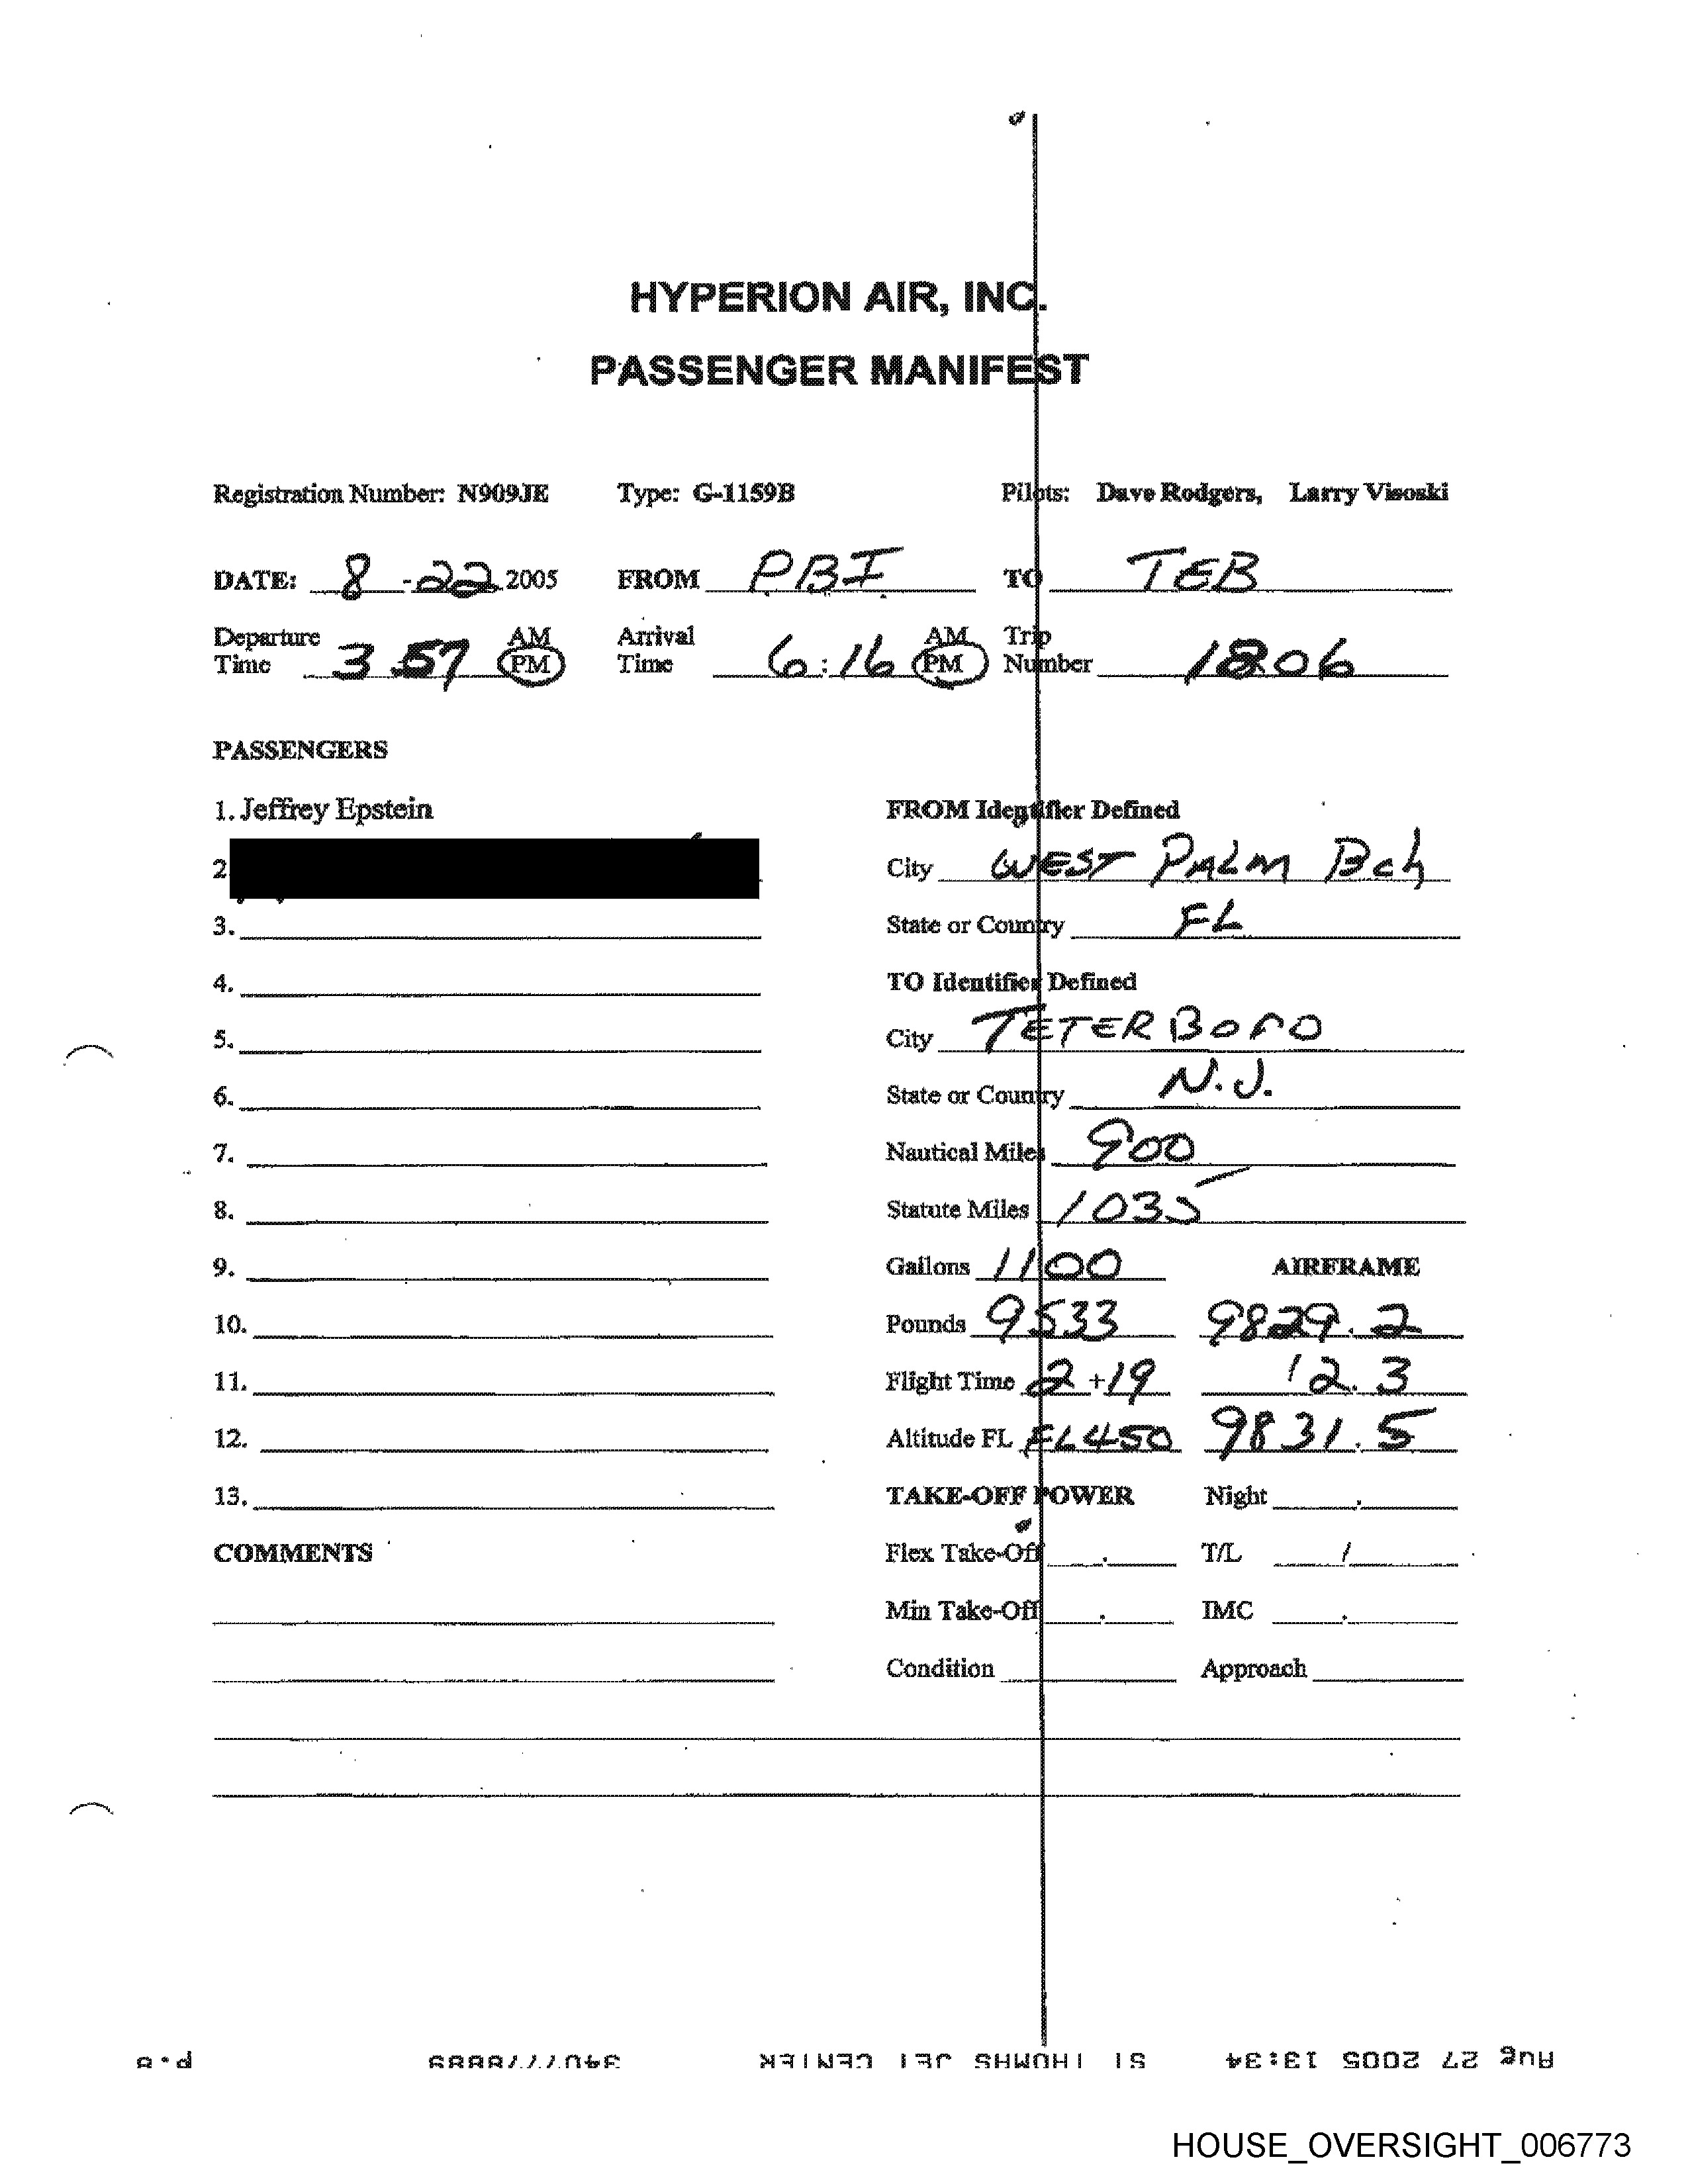 HYPERION AIR, INC.
PASSENGER MANIFEST
Registration Number: N909JE Type: G-1159B Pilots: Dave Rodgers, Larry Visoski
DATE: 8-22 2005 FROM PBI TO TEB
Departure Time 3:57 AM PM Arrival Time 6:16 AM PM Trip Number 1806
PASSENGERS
1. Jeffrey Epstein FROM Identifier Defined
2 City WEST PALM Bch
3. State or Country FL
4. TO Identifier Defined
5. City TETERBORO
6. State or Country N.J.
7. Nautical Miles 900
8. Statute Miles 1035
9. Gallons 1100 AIRFRAME
10. Pounds 9533 9829.2
11. Flight Time 2+19 2.3
12. Altitude FL FL450 9831.5
13. TAKE-OFF POWER Night
COMMENTS Flex Take-Off T/L /
Min Take-Off IMC
Condition Approach
Aug 27 2005 13:34 ST THOMAS JET CENTER 3407778889 P.8
HOUSE_OVERSIGHT_006773